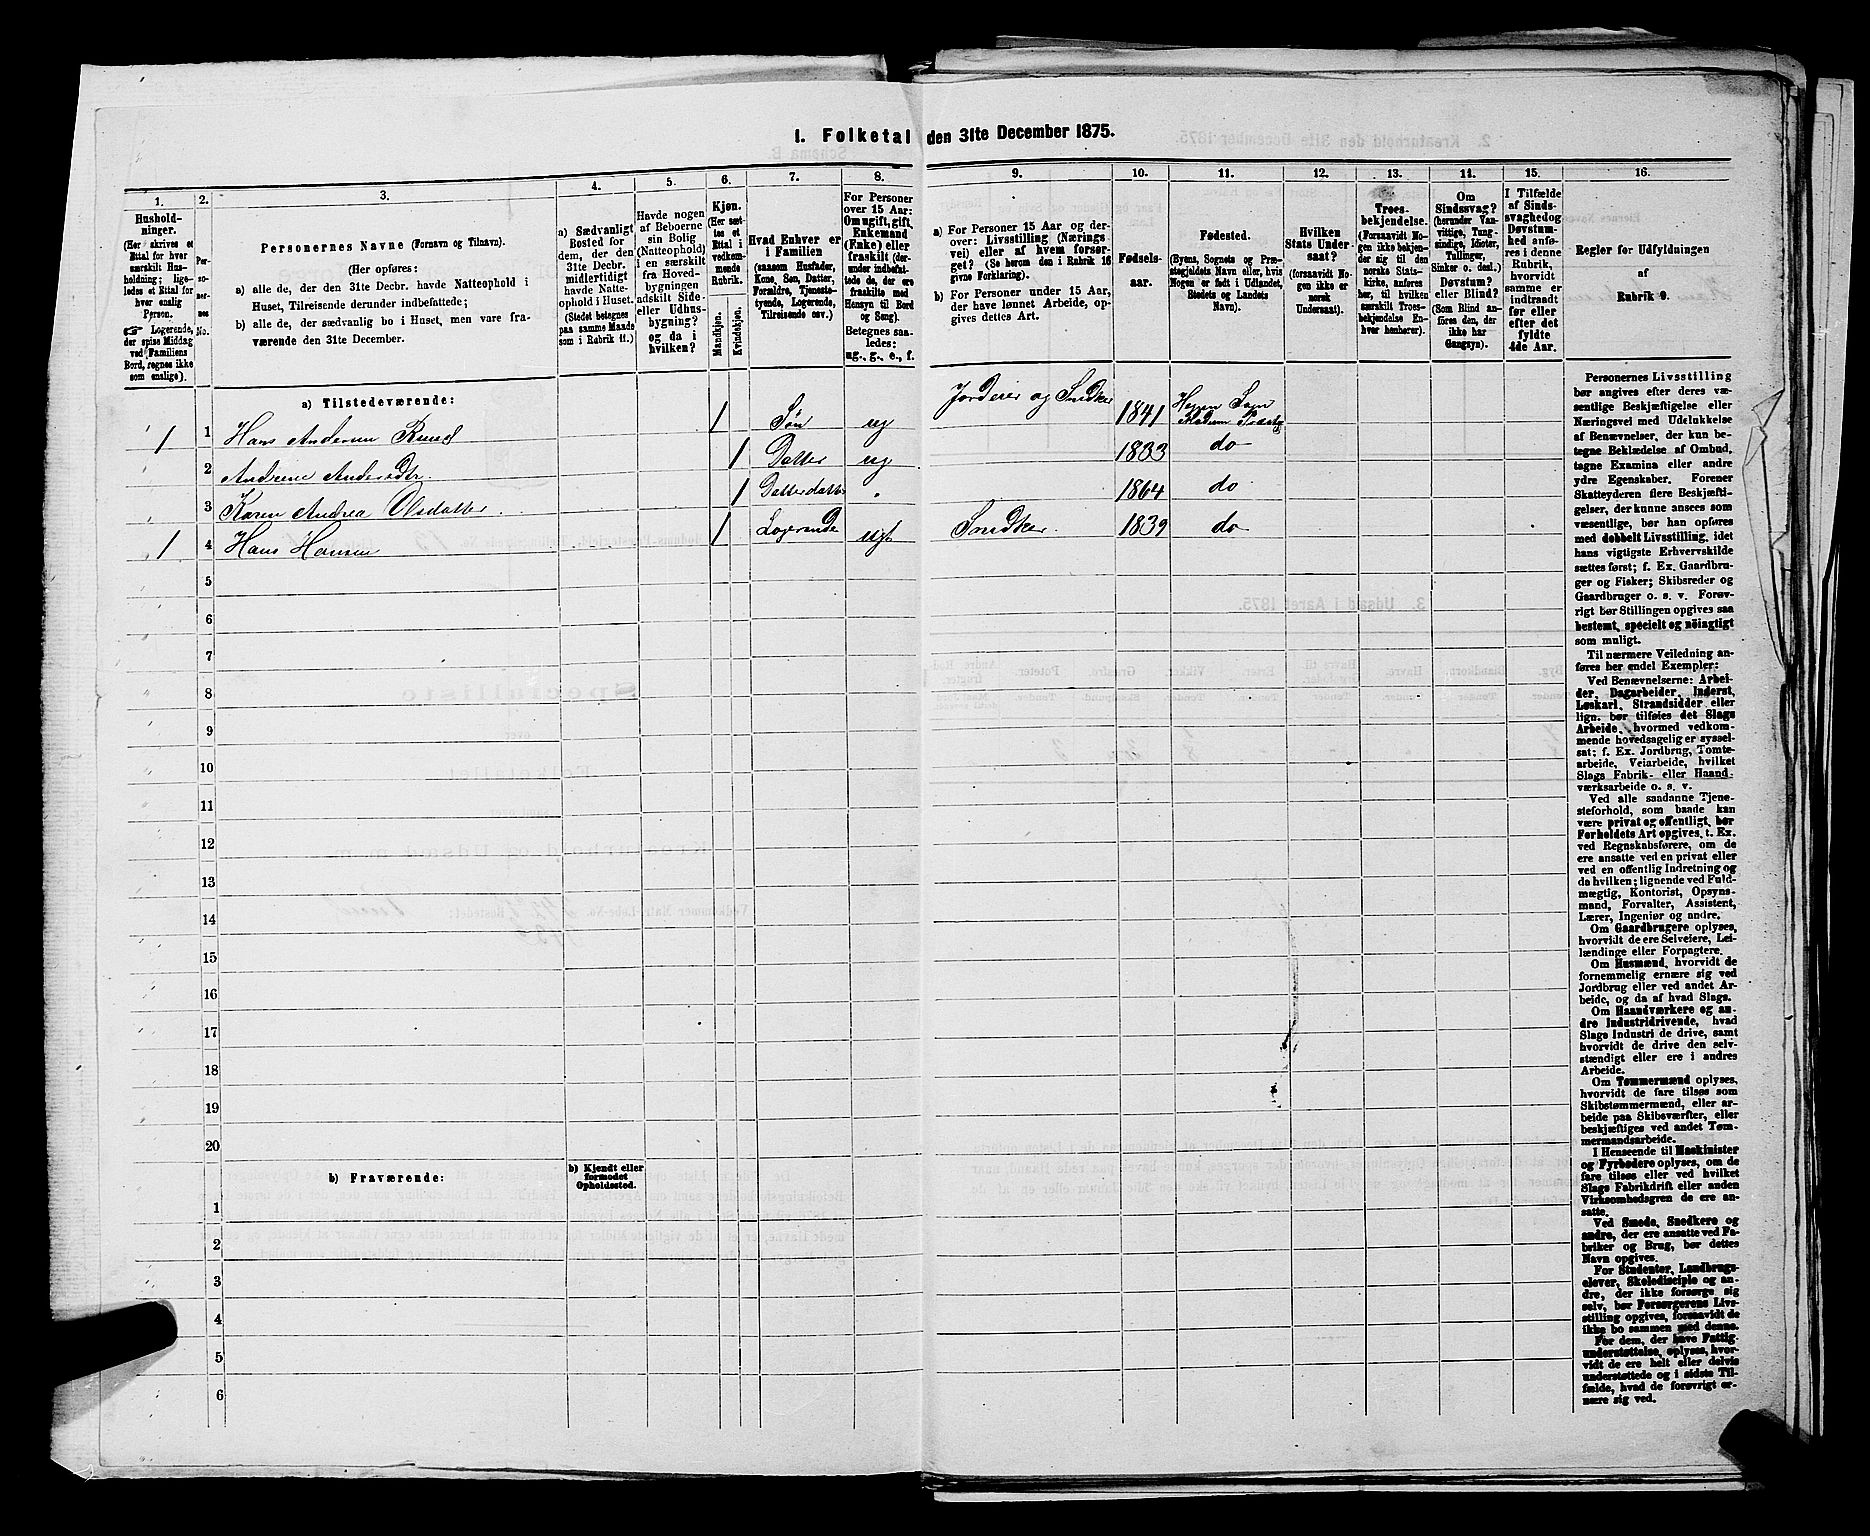 1. Folketal den 31te December 1875.
1.
Hushold-
ninger.
(Her skrives et
Ettal for hver
særskilt Hus-
holdning; lige-
ledes et Ettal for
hver enslig
Person.
Logerende,
der spise Middag
ved Familiens
Bord, regnes ikke
som enslige).
2.
Per-
so-
ner-
nes
No.
3.
Personernes Navne (Fornavn og Tilnavn).
(Her opføres:
a) alle de, der den 31te Decbr. havde Natteophold i
Huset, Tilreisende derunder indbefattede;
b) alle de, der sædvanlig bo i Huset, men vare fra-
værende den 31te December.
4.
a) Sædvanligt
Bosted for
dem, der den
31te Decbr.
havde midlerfidigt
havde Natte-
ophold i Huset.
(Stedet betegnes
paa samme Maade
som i Rubrik 11.)
5.
Havde nogen
af Beboerne
sin Bolig
(Natteophold)
i en særskilt
fra Hoved-
bygningen
adskilt Side-
eller Udhus-
bygning?
og da i
hvilken?
6.
Kjøn.
(Her sæt-
tes et
Ettal i
vedkom-
mende
Rubrik.
Mandkjøn.
Kvindekjøn.
7.
Hvad Enhver er
i Familien
(saasom Husfader,
Kone, Søn, Datter,
Forældre, Tjeneste-
tyende, Logerende,
Tilreisende osv.)
8.
For Personer
over 15 Aar:
Om ugift, gift,
Enkemand
(Enke) eller
fraskilt (der-
under indbefat-
tede de, der ere
fraskilte med
Hensyn til Bord
og Seng).
Betegnes saa-
ledes:
ug., g., e., f.
9.
a) For Personer 15 Aar og der-
over: Livsstilling (Nærings-
vei) eller af hvem forsør-
get? (Se herom den i Rubrik 16
givne Forklaring).
b) For Personer under 15 Aar,
der have lønnet Arbeide, op-
gives dettes Art.
10.
Fødsels-
aar.
11.
Fødested.
(Byens, Sognets og Præ-
stegjeldets Navn eller, hvis
Nogen er født i Udlandet,
Stedets og Landets
Navn).
12.
Hvilken
Stats Under-
saat?
(forsaavidt No-
gen ikke er
norsk
Undersaat).
13.
Troes-
bekjendelse.
(Forsaavidt No-
gen ikke bekjen-
der sig til den
norske Stats-
kirke, anføres
her, til hvilken
særskilt Troes-
bekjendelse En-
hver henhører).
14.
Om
Sindssvag?
(herunder Van-
vittige, Tung-
sindige, Idioter,
Tullinger,
Sinker o. desl.)
Døvstum?
eller Blind?
(Som Blind an-
føres den, der
ikke har
Gangsyn).
15.
I Tilfælde
af Sinds-
svaghed og
Døvstum-
hed anfø-
res i denne
Rubrik,
hvorvidt
samme er
indtraadt
før eller
efter det
fyldte
4de Aar.
16.
Regler for Udfyldningen
af
Rubrik 9.
a) Tilstedeværende:
1 1 Hans Andersen Ruud 1 Søn ug Jorddeier og Snedker 1841 Heggen Sogn Modum Præstg
2 Andrine Andersdtr 1 Datter ug 1833 do
3 Karen Andrea Olsdatter 1 Datterdatter 1864 do
1 4 Hans Hansen 1 Logerende ugt Snedker 1839 do
5
6
7
8
9
10
11
12
13
14
15
16
17
18
19
20
b) Fraværende:
b) Kjendt eller
formodet
Opholdssted.
1
2
3
4
5
6
Personernes Livsstilling
bør angives efter deres væ-
sentlige Beskjæftigelse eller
Næringsvei med Udelukkelse
af Benævnelser, der kun be-
tegne Beklædelse af Ombud,
tagne Examina eller andre
ydre Egenskaber. Forener
Skatteyderen flere Beskjæfti-
gelser, der kunne ansees som
væsentlige, bør han opføres
med dobbelt Livsstilling, idet
hans vigtigste Erhvervskilde
sættes først; f. Ex. Gaardbru-
ger og Fisker; Skibsreder og
Gaardbruger o. s. v. Forøv-
rigt bør Stillingen opgives saa
bestemt, specielt og nöiagtigt
som muligt.
Til nærmere Veiledning an-
føres her endel Exempler:
Ved Benævnelserne: Arbei-
der, Dagarbeider, Inderst,
Løskarl, Strandsidder eller
lign. bør tilføies det Slags
Arbeide, hvormed vedkom-
mende hovedsagelig er syssel-
sat; f. Ex. Jordbrug, Tomte-
arbeide, Veiarbeide, hvilket
Slags Fabrik- eller Haand-
værksarbeide o. s. v.
Ved alle saadanne Tjene-
steforhold, som baade kan
være privat og offentligt, bør
Forholdets Art opgives, t. Ex.
ved Regnskabsførere, om de
ere ansatte ved en privat eller
ved en offentlig Indretning og
da hvilken; lignende ved Fuld-
mægtig, Kontorist, Opsyns-
mand, Forvalter, Assistent,
Lærer, Ingeniør og andre.
Om Gaardbrugere oplyses,
hvorvidt de ere Selveiere, Lei-
lændinge eller Forpagtere.
Om Husmænd, hvorvidt de
fornemmelig ernære sig ved
Jordbrug eller ved andet Ar-
beide, og da af hvad Slags.
Om Haandværkere og an-
dre Industridrivende, hvad
Slags Industri de drive, samt
hvorvidt de drive den selv-
stændigt eller ere i andres
Arbeide.
Om Tømmermænd oplyses,
hvorvidt de fare tilsøs som
Skibstømmermænd, eller ar-
beide paa Skibsværfter, eller
beskjæftiges ved andet Tøm-
mermandsarbeide.
I Henseende til Maskinister
og Fyrbødere oplyses, om de
fare tilsøs eller ved hvilket
Slags Fabrikdrift eller anden
Virksomhedsgren de ere an-
satte.
Ved Smede, Snedkere og
andre, der ere ansatte ved Fa-
briker og Brug, bør dettes
Navn opgives.
For Studenter, Landbrugs-
elever, Skoledisciple og an-
dre, der ikke forsørge sig
selv, bør Forsørgerens Livs-
stilling opgives, forsaavidt de
ikke bo sammen med denne.
For dem, der have Fattig-
understøttelse, oplyses, hvor-
vidt de ere helt eller delvis
understøttede og i sidste Til-
fælde, hvad de forøvrigt er-
nære sig ved.